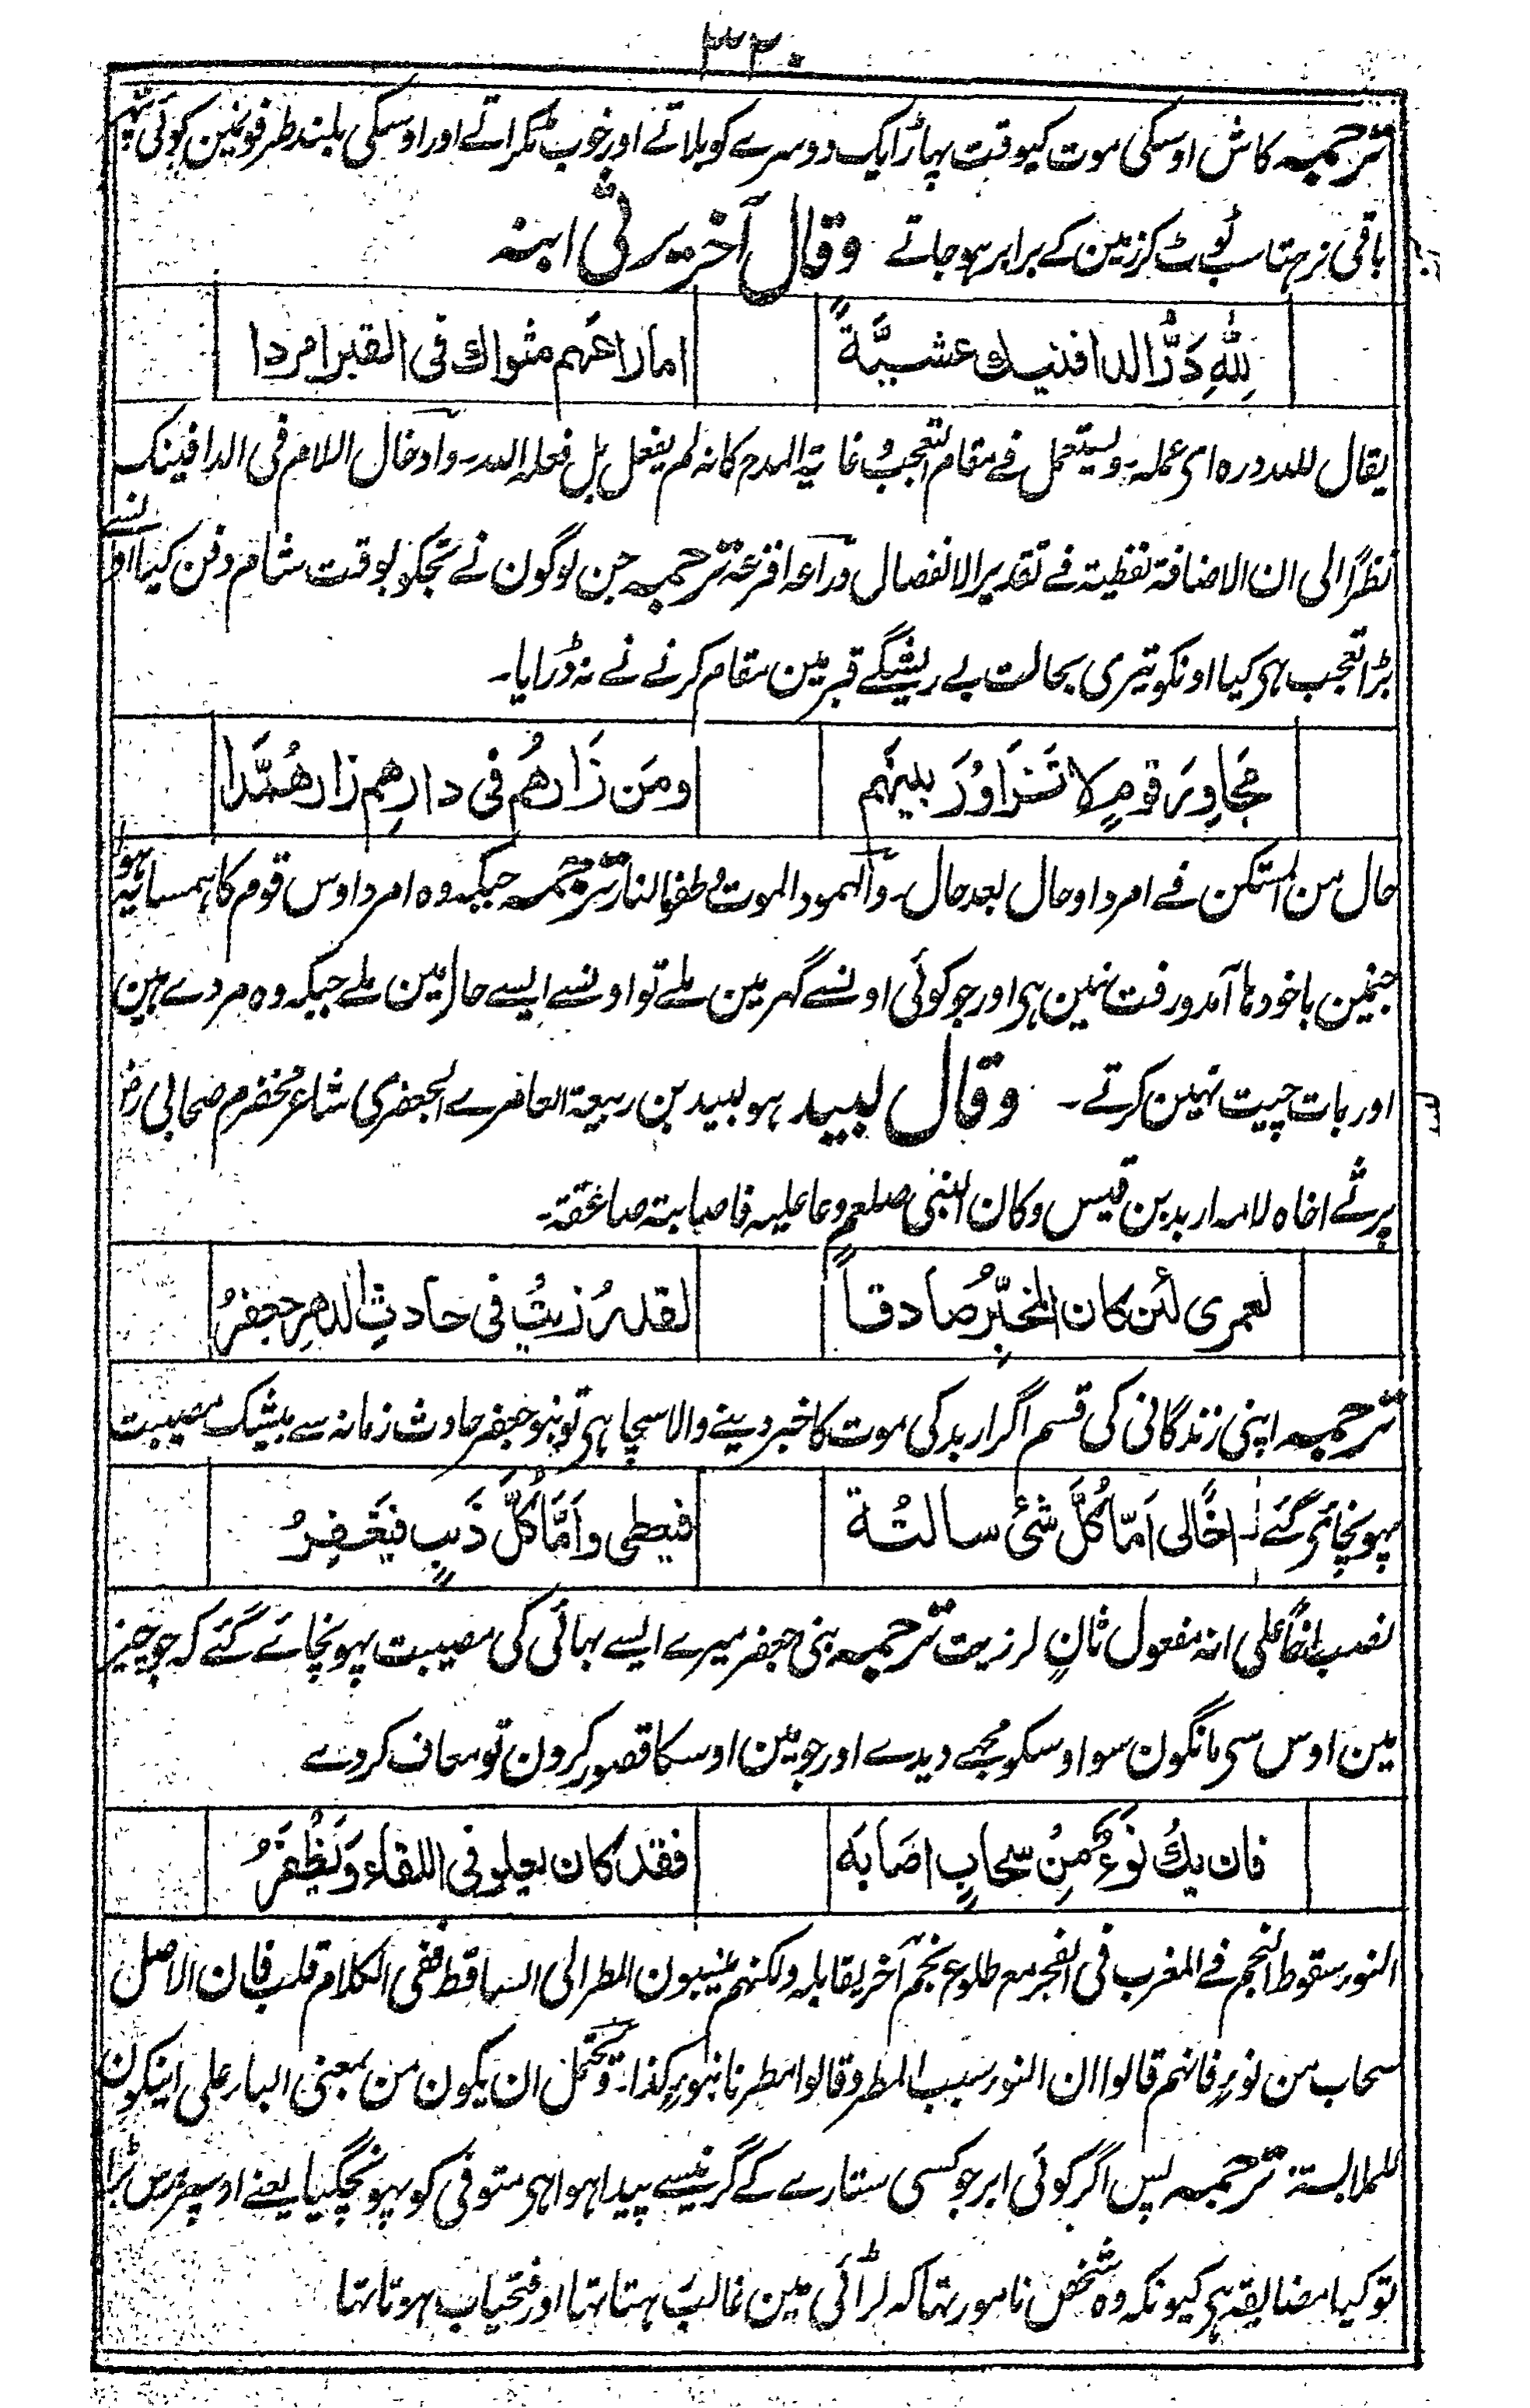 ۳۳۰
ترجمہ کاش اوسکی موت کیوقت پہاڑ ایک دوسرے کو بلاتے اور خوب ٹکراتے اور اوسکی بلند طرفونمین کوئی پتھر
باقی نرہتا سب ٹوٹ کر زمین کے برابر ہوجاتے وقال آخر یرثی ابنہ
لِلّٰہِ دَرُّ الدافنیك عشیَّةً اماراعَهم مثواك فی القبر امردا
یقال للہ درہ ای عملہ۔ ویستعمل فے مقام التعجب و غایۃ المدح کانہ لم یفعل بل فعلہ اللہ۔ وادخال اللام فی الدافینک
نظرًا الی ان الاضافۃ لفظیۃ فے تقدیر الانفصال وراعہ افزعہ ترجمہ جن لوگون نے تجکو بوقت شام دفن کیا اونسے
بڑا تعجب ہی کیا اونکو تیری بحالت بے ریشگے قبر مین مقام کرنے نے نہ ڈرایا۔
مُجَاوِرَ قومٍ لا تَزَاوُرَ بینَهم ومَن زَارَهُم فی دارِهِم زارَ هُمَّدَا
حال من المستکن فے امردا وحال بعد حال۔ والہمود الموت و طفو النار ترجمہ جبکہ وہ امرد اوس قوم کا ہمسایہ ہوا
جنمین باخودہا آمدورفت نہین ہی اور جو کوئی اونسے گہر مین ملے تو اونسے ایسے حال مین ملے جبکہ وہ مردے ہین
اور بات چیت نہین کرتے۔ وقال لبید ہو لبید بن ربیعۃ العامرے الجعفری شاعر مخضرم صحابی رض
یرثے اخاہ لامہ اربد بن قیس وکان النبی صلعم دعا علیہ فاصابتہ صاعقۃ۔
لعمری لئن کان المخبِّرُ صادقاً لقد رُزِیتُ فی حادثِ الدهرِ جعفرُ
ترجمہ اپنی زندگانی کی قسم اگر اربد کی موت کا خبر دینے والا سچا ہی تو بنو جعفر حادث زمانہ سے بیشک مصیبت
پہونچائی گئے۔ اخًالی اَمّا کُلَّ شئ سالتُهُ فیعطی واَمَّا کُلَّ ذَنبٍ فیَغفِرُ
نصب اخًا علی انہ مفعول ثانٍ لرزیت ترجمہ بنی جعفر میرے ایسے بہائی کی مصیبت پہونچائے گئے کہ جو چیز
مین اوس سی مانگون سو اوسکو مجھے دیدے اور جو مین اوسکا قصور کرون تو معاف کردے
فان یكُ نَوءٌ مِن سحابٍ اصَابَه فقد کان یعلو فی اللقاء وَیَظْفَرُ
النوء سقوط النجم فے المغرب فی الفجر مع طلوع نجم آخر یقابلہ ولکنہم ینسبون المطر الی الساقط ففی الکلام قلب فان الاصل
سحاب من نوءٍ فانہم قالوا ان النوء سبب المطر وقالوا مطرنا بنوء کذا۔ ویحتمل ان یکون من بمعنی الباء علی ان یکون
للملابستہ ترجمہ پس اگر کوئی ابر جو کسی ستارے کے گرنیسے پیدا ہوا ہی متوفی کو پہونچگیا یعنے اوسپر برس پڑا
تو کیا مضایقہ ہی کیونکہ وہ شخص نامور تہا کہ لڑائی مین غالب رہتا تہا اور فتحیاب ہوتا تہا